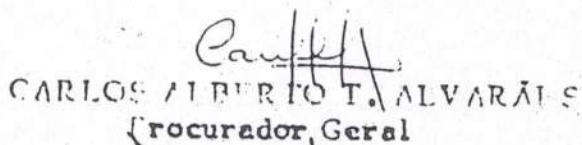 CARLOS ALBERTO T. ALVARÃES
Procurador Geral